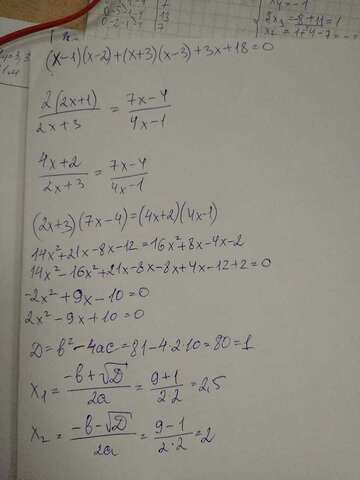 x₄=-1
2x₃=-8+11=1
(x-1)(x-2)+(x+3)(x-3)+3x+18=0
2(2x+1)/2x+3 = 7x-4/4x-1
4x+2/2x+3 = 7x-4/4x-1
(2x+3)(7x-4)=(4x+2)(4x-1)
14x²+21x-8x-12=16x²+8x-4x-2
14x²-16x²+21x-8x-8x+4x-12+2=0
-2x²+9x-10=0
2x²-9x+10=0
D=b²-4ac=81-4·2·10=80=1
x₁=-b+√D/2a=9+1/2·2=2,5
x₂=-b-√D/2a=9-1/2·2=2